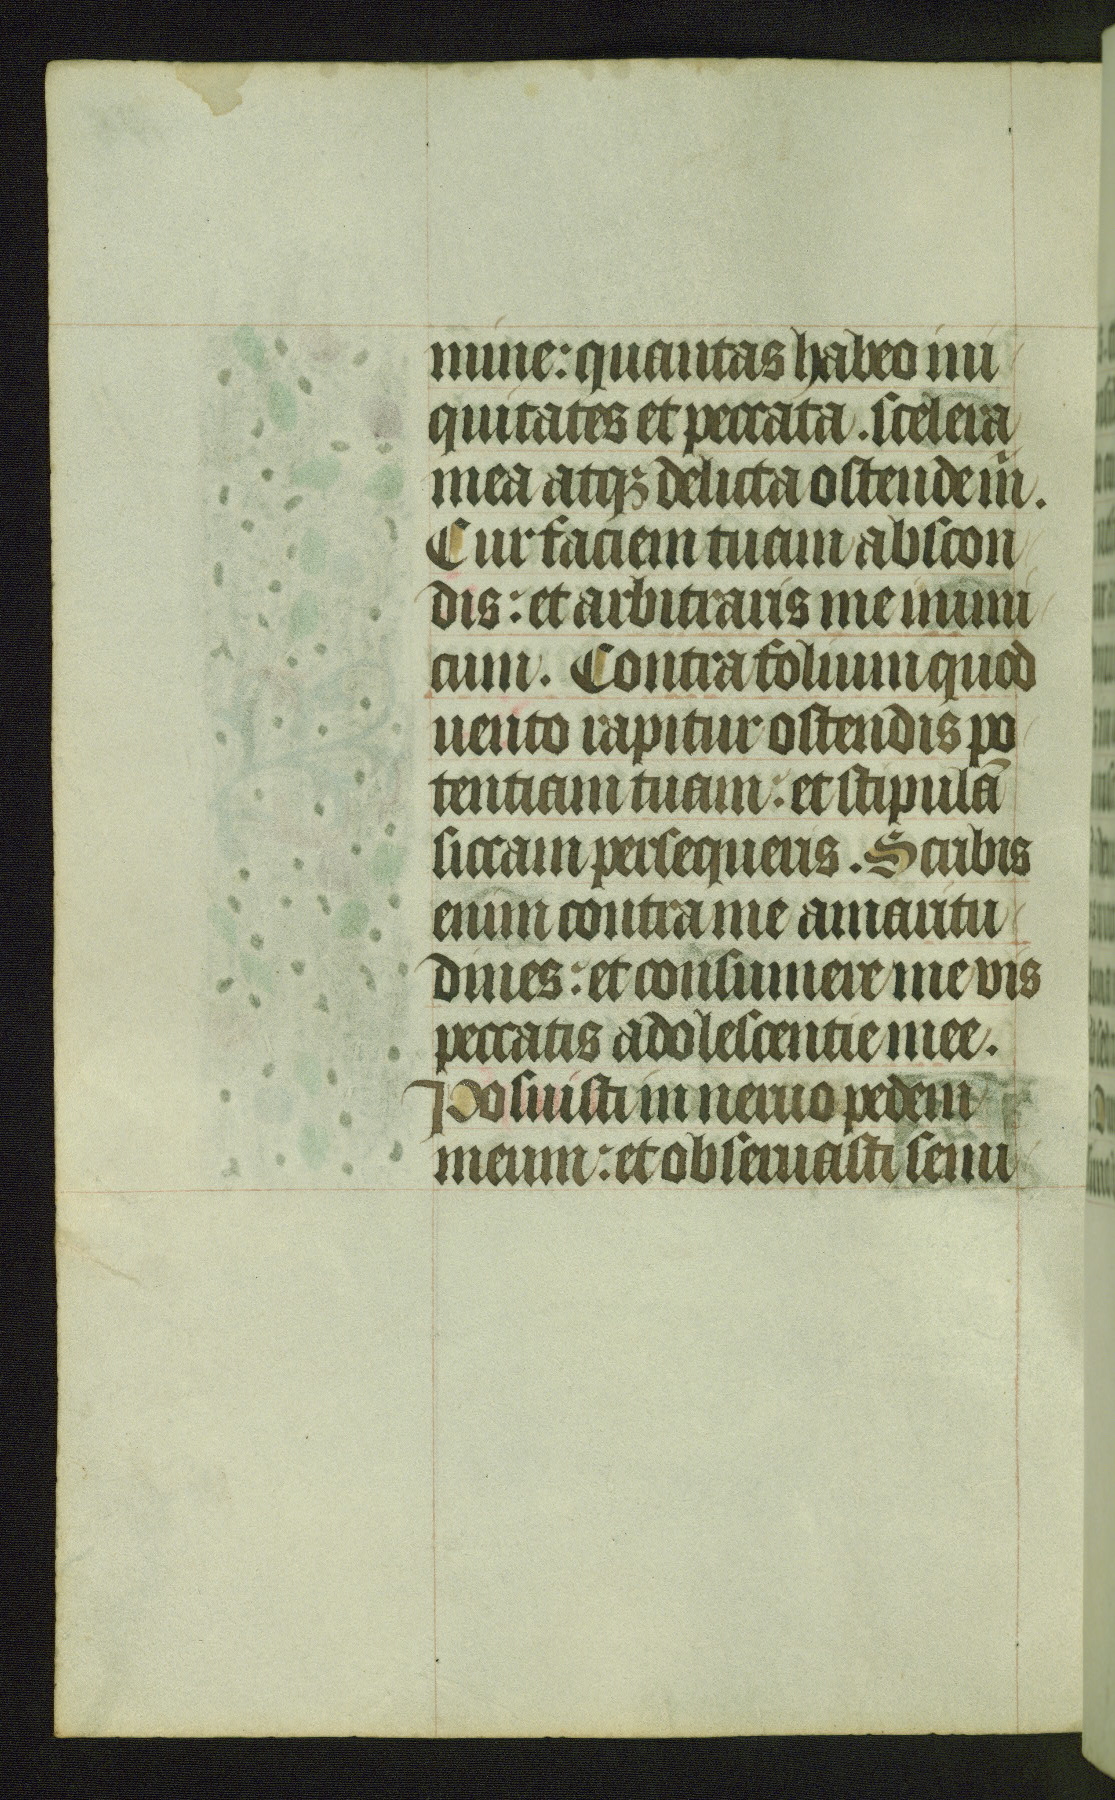 mine: quantas habeo ini
quitates et peccata. scelera
mea atqꝫ delicta ostende m̄.
Cur faciem tuam abscon
dis: et arbitraris me inimi
cum. Contra folium quod
uento rapitur ostendis po
tentiam tuam: et stipulā
siccam persequeris. Scribis
enim contra me amaritu
dines: et consumere me vis
peccatis adolescentie mee.
Posuisti in neruo pedem
meum: et obseruasti semi